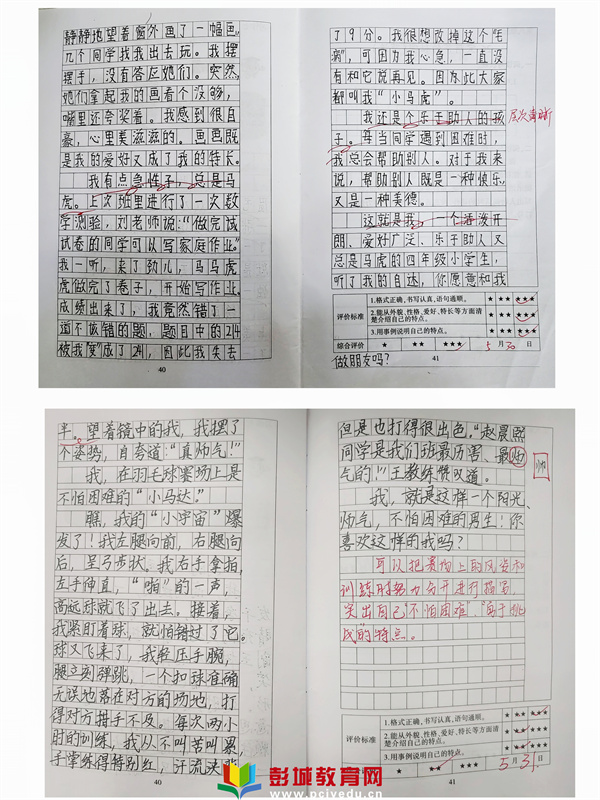 静静地望着窗外画了一幅画。
几个同学找我出去玩。我摆
摆手，没有答应她们。突然，
她们拿起我的画看个没够，
嘴里还夸奖着。我感到很自
豪，心里美滋滋的。画画既
是我的爱好又成了我的特长。
我有点急性子，总是马
虎。上次班里进行了一次数
学测验，刘老师说：“做完试
试卷的同学可以写家庭作业。”
我一听，来了劲儿，马马虎
虎做完了卷子，开始写作业。
成绩出来了，我竟然错了一
道不该错的题，题目中的214
被我“变”成了24，因此我失去
40
了9分。我很想改掉这个“毛
病”，可因为我心急，一直没
有和它说再见。因为此大家
都叫我“小马虎”。
我还是个乐于助人的孩
层次清晰
子。每当同学遇到困难时，
我总会帮助别人。对于我来
说，帮助别人既是一种快乐，
又是一种美德。
这就是我，一个活泼开
朗、爱好广泛、乐于助人又
总是马虎的四年级小学生，
听了我的自述，你愿意和我
评价标准
1.格式正确，书写认真，语句通顺。 ★ ★★ ★★★
2.能从外貌、性格、爱好、特长等方面清
楚介绍自己的特点。 ★ ★★ ★★★
3.用事例说明自己的特点。 ★ ★★ ★★★
综合评价 ★ ★★ ★★★ 5月30日
做朋友吗？
41
半。望着镜中的我，我摆了
个姿势，自夸道：“真帅气！”
我，在羽毛球赛场上是
不怕困难的“小马达。”
瞧，我的“小宇宙”爆
发了！我左腿向前，右腿向
后，呈弓步状。我右手拿拍，
左手伸直，“啪”的一声，
高远球就飞了出去。接着，
我紧盯着球，就怕错过了它。
球又飞来了，我轻压手腕，
腿立刻弹跳，一个扣球准确
无误地落在对方的场地，打
得对方措手不及。每次两小
时的训练，我从不叫苦叫累
手掌练得特别红，汗流浃背
40
但是也打得很出色。“赵晨熙
同学是我们班最厉害、最帅
气的！”王教练赞叹道。
帅
我，就是这样一个阳光、
帅气，不怕困难的男生！你
喜欢这样的我吗？
可以把赛场上的风姿和
训练时努力分开进行描写，
突出自己“不怕困难”“勇于挑
战”的特点。
评价标准
1.格式正确，书写认真，语句通顺。 ★ ★★ ★★★
2.能从外貌、性格、爱好、特长等方面清
楚介绍自己的特点。 ★ ★★ ★★★
3.用事例说明自己的特点。 ★ ★★ ★★★
综合评价 ★ ★★ ★★★ 5月31日
41
彭城教育网
www.pcivedu.cn